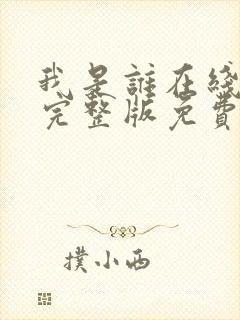 我是誰在綫
完整版免費
撲小西